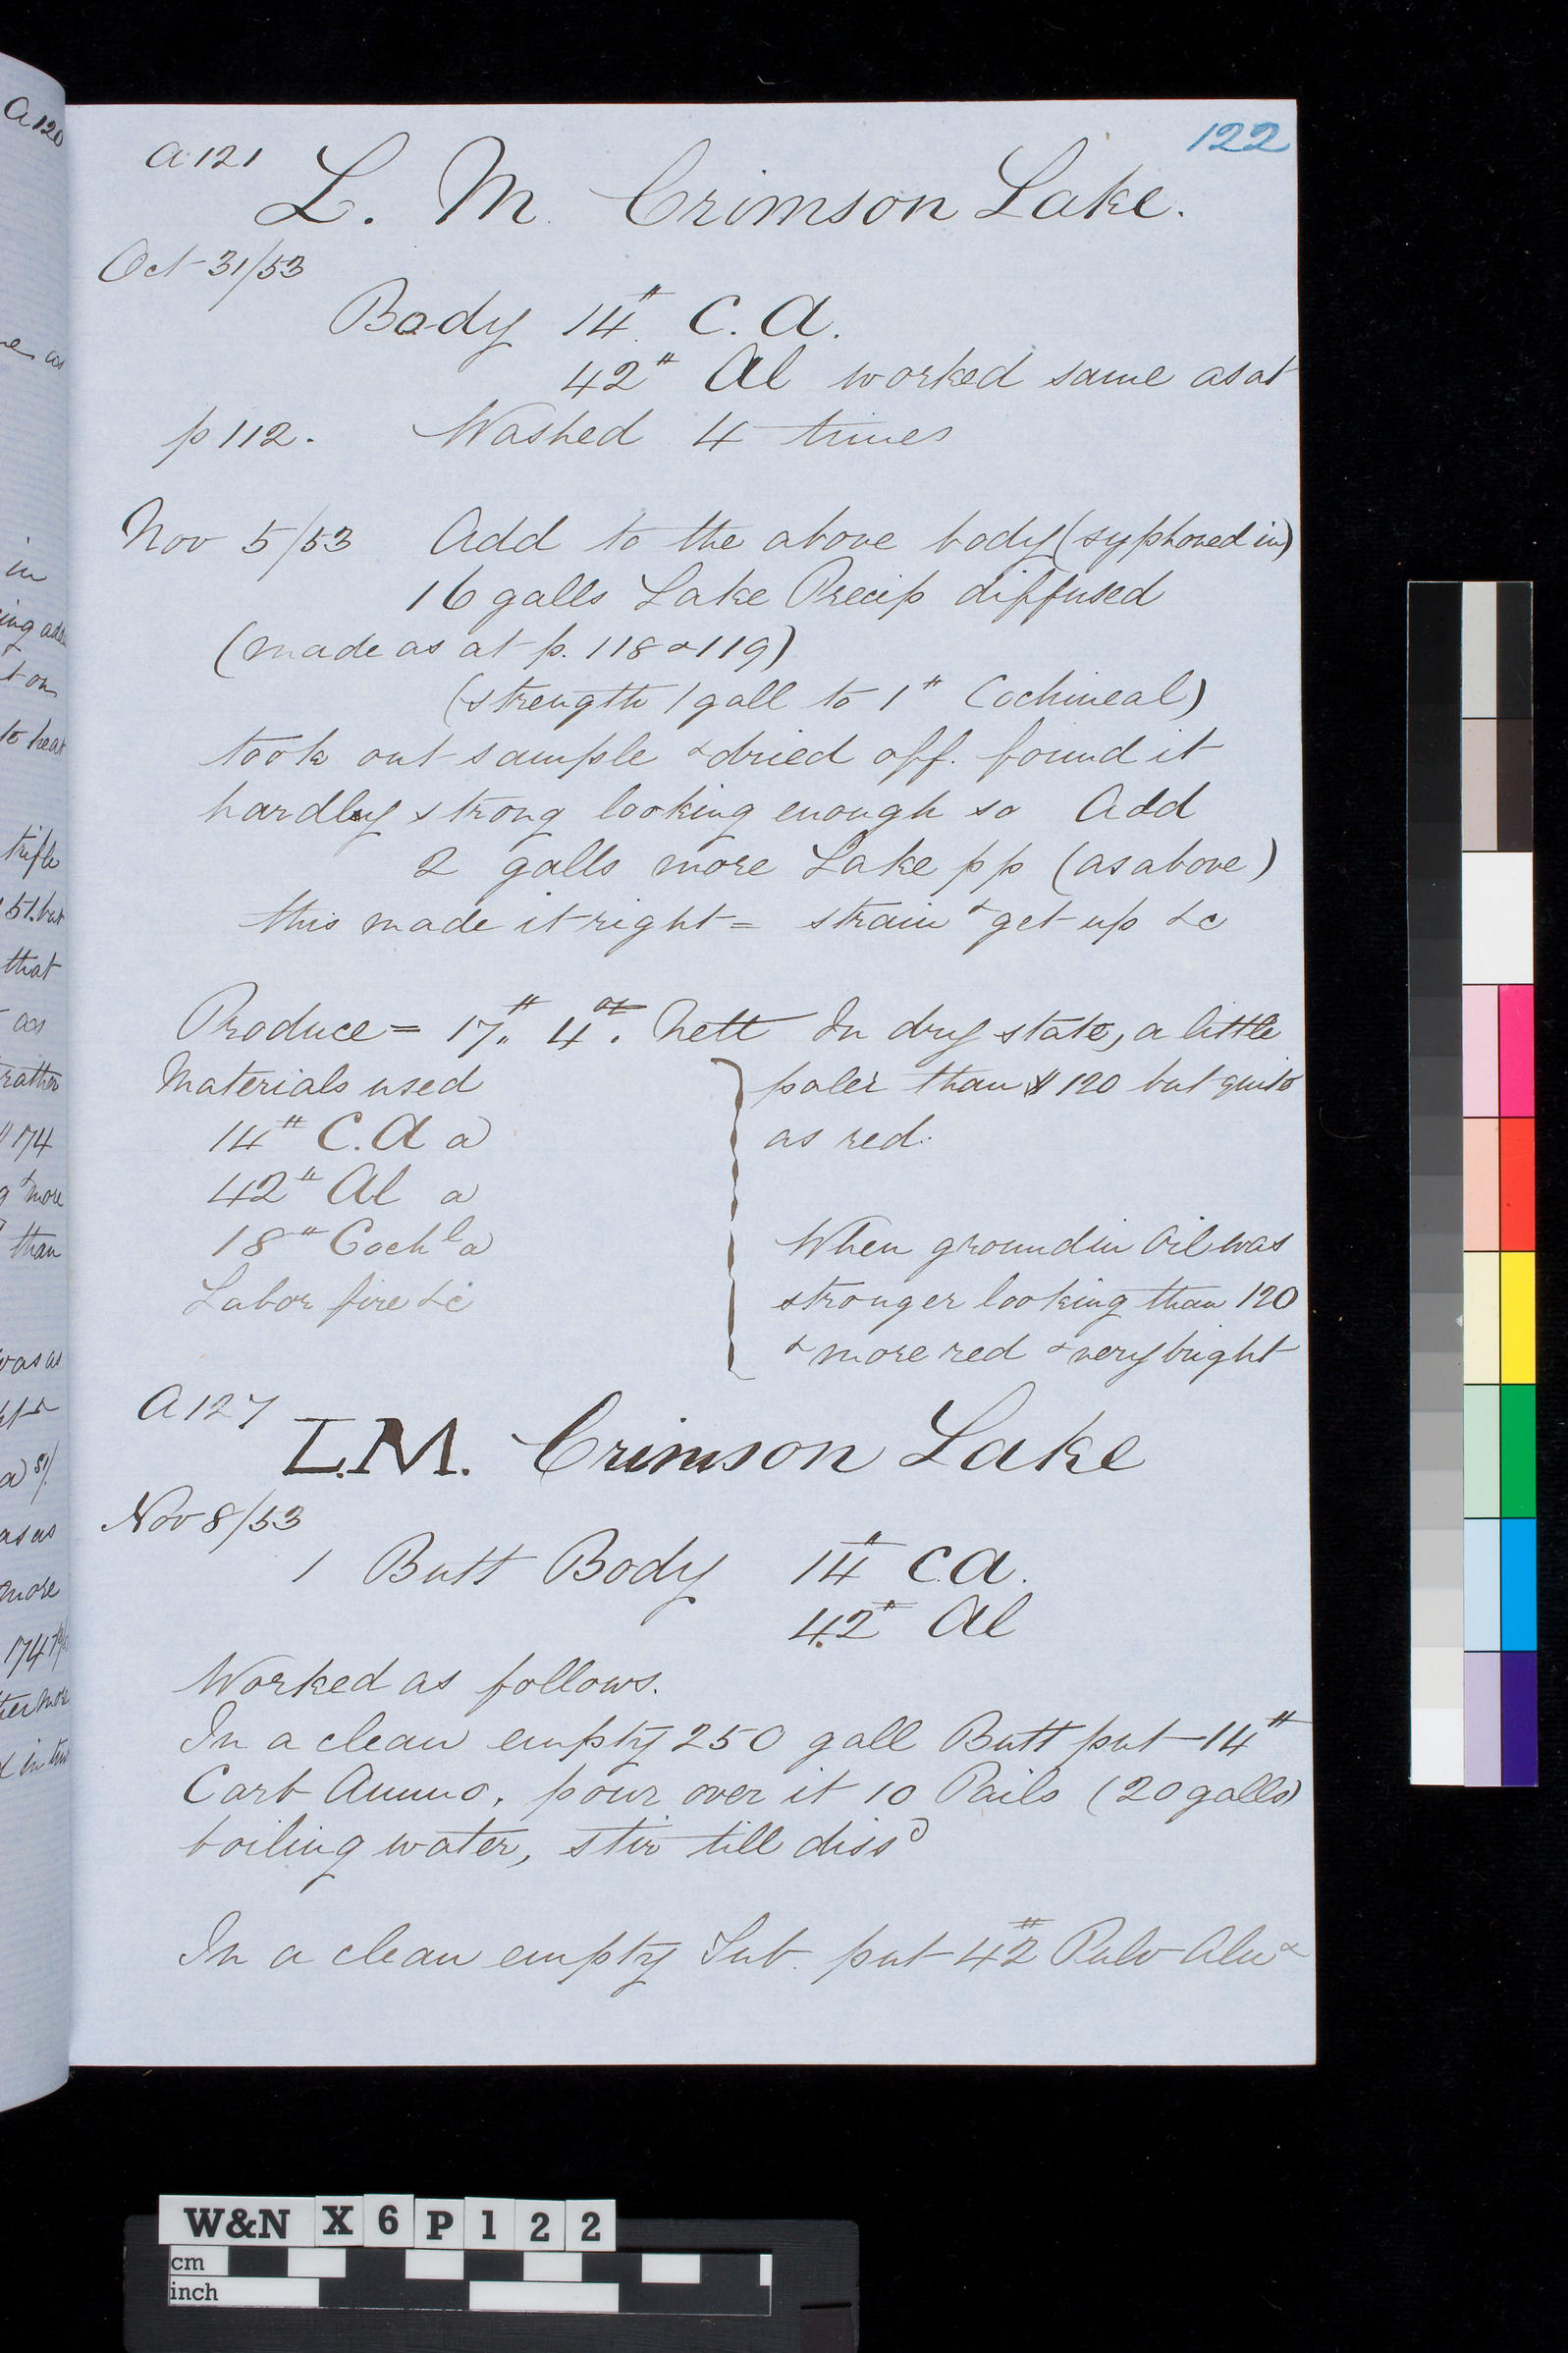 122
A 121
L. M. Crimson Lake.
Oct 31/53
Body 14# C. A.
42# Al worked same as at
p 112. Washed 4 times
Nov 5/53 Add to the above body (syphoned in)
16 galls Lake Precip diffused
(made as at p. 118 & 119)
(strength 1 gall to 1# Cochineal)
took out sample & dried off. found it
hardly strong looking enough so Add
2 galls more Lake pp (as above)
this made it right = strain & get up &c
Produce = 17# 4oz. Nett In dry state, a little
Materials used
14# C.A a
42# Al a
18# Cochl a
Labor fire &c
paler than # 120 but quite
as red.
When ground in Oil was
stronger looking than 120
& more red & very bright
A 127
L.M. Crimson Lake
Nov 8/53
1 Butt Body 14# C.A.
42# Al
Worked as follows.
In a clean empty 250 gall Butt put 14#
Carb Ammo, pour over it 10 Pails (20 galls)
boiling water, stir till dissd
In a clean empty Tub. put 42# Pulv Alu &
A 120
in
to heat
trifle
51. but
that
as
rather
174
& more
than
was as
as as
more
174
W&N X 6 P 1 2 2
cm
inch